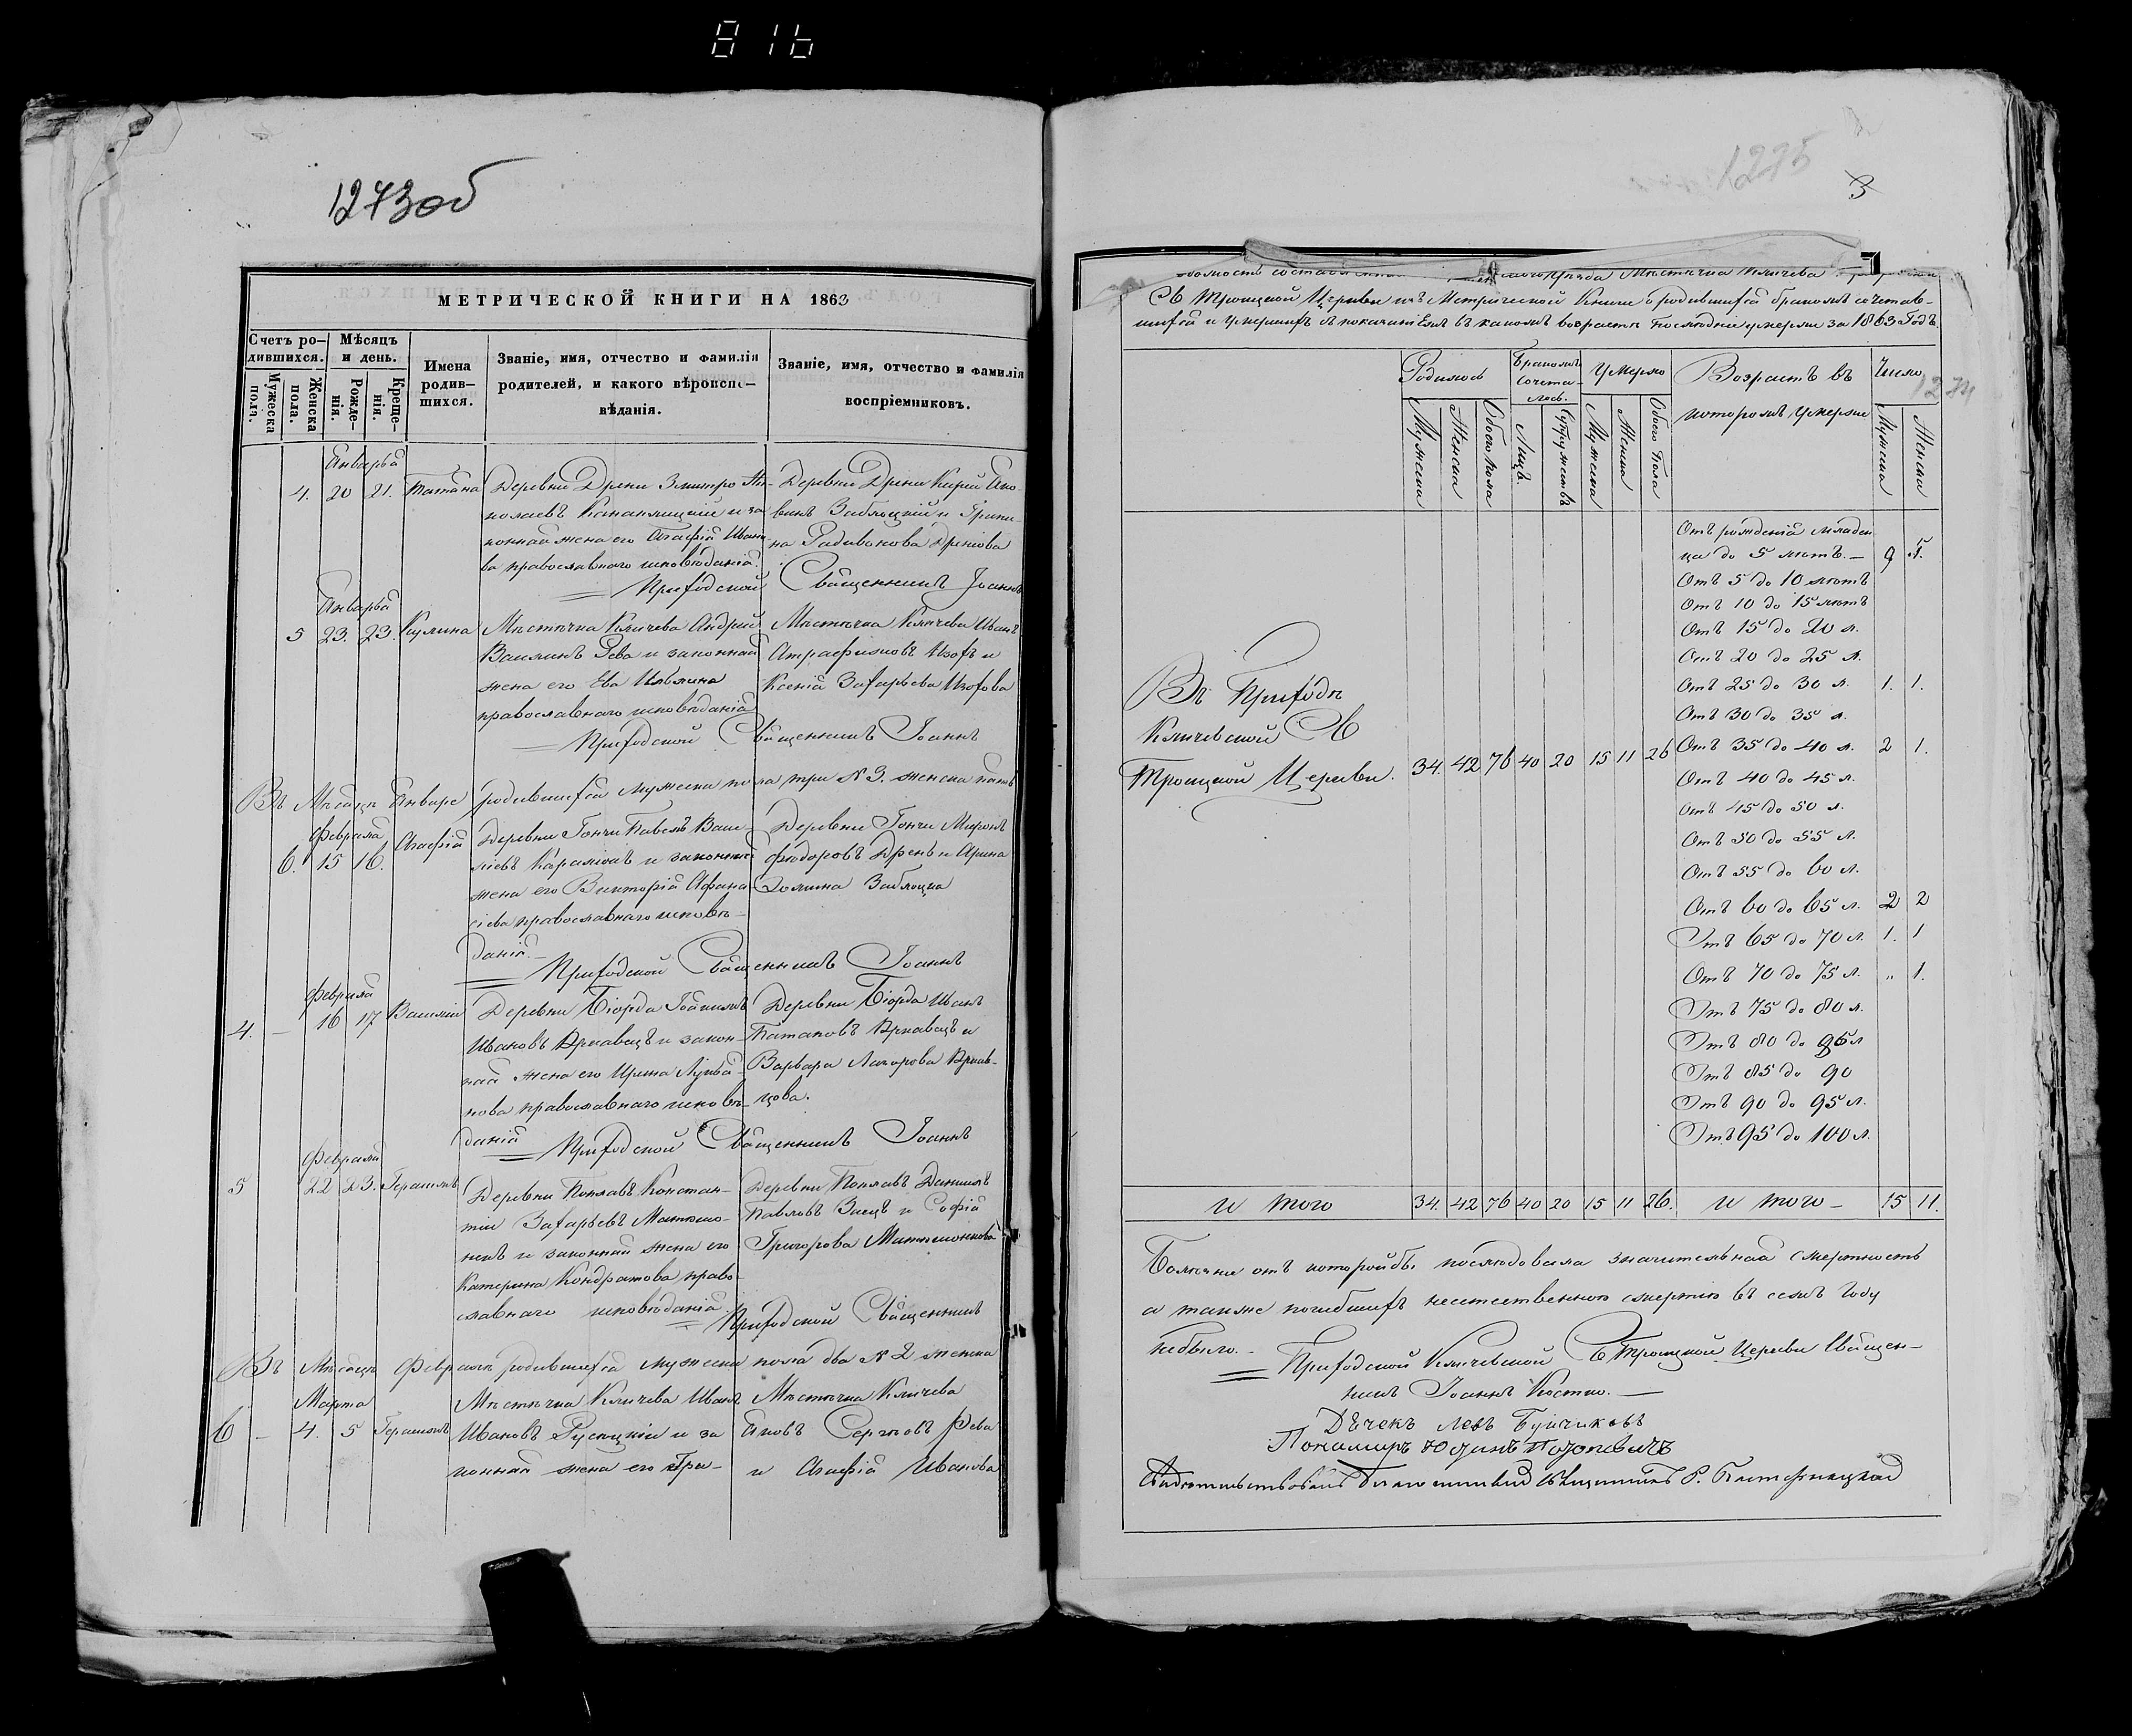 816
1273об
МЕТРИЧЕСКОЙ КНИГИ НА 1863
Счетъ ро-
дившихся.
Мѣсяцъ
и день.
Имена
родив-
шихся.
Званіе, имя, отчество и фамилія
родителей, и какого вѣроиспо-
вѣданія.
Званіе, имя, отчество и фамилія
воспріемниковъ.
Мужеска
пола.
Женска
пола.
Рожде-
нія.
Креще-
нія.
Января
4. 20 21. Татіана
Деревни Дрени Змитро Ни-
колаевъ и за
конная жена его Агафія Ивано
ва православнаго исповѣданія.
Деревни Дрени Кирей Яко-
вовъ Заблоцкій и Ірини
на Радивонова Дренова
Приходской Священникъ Іоаннъ
Января
5 23. 23. Кулина
Мѣстечка Кличева Андрей
Василевъ Рева и законная
жена его Ева
православнаго исповѣданія
Мѣстечка Кличева Иванъ
Изохъ и
Ксенія Захарьева Изохова
Приходской Священникъ Іоаннъ
Въ Мѣсяцѣ Январе родившихся мужеска пола три № 3. женска пять
Февраля
6. 15 16. Агафія
Деревни Гончи Павелъ Васи-
ліевъ и законная
жена его Викторія Афана-
сіева православнаго исповѣ-
данія.
Деревни Гончи Миронъ
Федоровъ Дрень и Арина
Заблоцка
Приходской Священникъ Іоаннъ
Февраля
4. – 16 17 Василій
Деревни Біорда
Ивановъ и закон-
ная жена его Ирина Лукья-
нова православнаго исповѣ-
данія
Деревни Біорда Иванъ
и
Варвара
цова.
Приходской Священникъ Іоаннъ
Февраля
5 22 23. Герасимъ
Деревни Поплавъ Констан-
тій Захарьевъ
и законная жена его
Катерина Кондратова право-
славнаго исповѣданія.
Деревни Поплавъ Даніилъ
Павловъ Заецъ и Софія
Григорова
Приходской Священникъ
Въ Мѣсяцѣ Февралѣ родившихся мужеска пола два № 2 женска
Марта
6 – 4. 5 Герасимъ
Мѣстечка Кличева Иванъ
Ивановъ Русецкій и за
конная жена его Гри-
Мѣстечка Кличева
Яковъ Сергѣевъ Рева
и Агафія Иванова
1275
3
Мѣстечка Кличева
Св Троицкой Церкви изъ Метрической Книги о родившихся бракомъ сочетав-
шихся и умершихъ съ показаніемъ въ какомъ возрастѣ послѣдніе умерли за 1863 Годъ.
1274
Родилось
Бракомъ
сочета-
лось.
Умерло
Возрастъ въ
которомъ умерли
Число
Мужеска
Женска
Обоего пола
Лицъ.
Супружествъ
Мужеска
Женска
Обоего пола
Мужеска
Женска
Въ Приходѣ
Кличевской Св
Троицкой Церкви. 34. 42 76 40 20 15 11 26
Отъ рожденія младен
ца до 5 лѣтъ. – 9
Отъ 5 до 10 лѣтъ
Отъ 10 до 15 лѣтъ
Отъ 15 до 20 л.
Отъ 20 до 25 л.
Отъ 25 до 30 л. 1. 1.
Отъ 30 до 35 л.
Отъ 35 до 40 л. 2 1.
Отъ 40 до 45 л.
Отъ 45 до 50 л.
Отъ 50 до 55 л.
Отъ 55 до 60 л.
Отъ 60 до 65 л. 2 2
Отъ 65 до 70 л. 1. 1
Отъ 70 до 75 л. „ 1.
Отъ 75 до 80 л.
Отъ 80 до 85 л
Отъ 85 до 90
Отъ 90 до 95 л.
Отъ 95 до 100 л.
И того 34. 42 76 40 20 15 11 26. И того – 15 11.
Болѣзни отъ которой бы послѣдовала значительная смертность
а также погибшихъ неестественною смертію въ семъ году
небыло. –
Приходской Кличевской С Троицкой Церкви Священ-
никъ Іоаннъ Костко. –
Дьячекъ Левъ
Пономарь